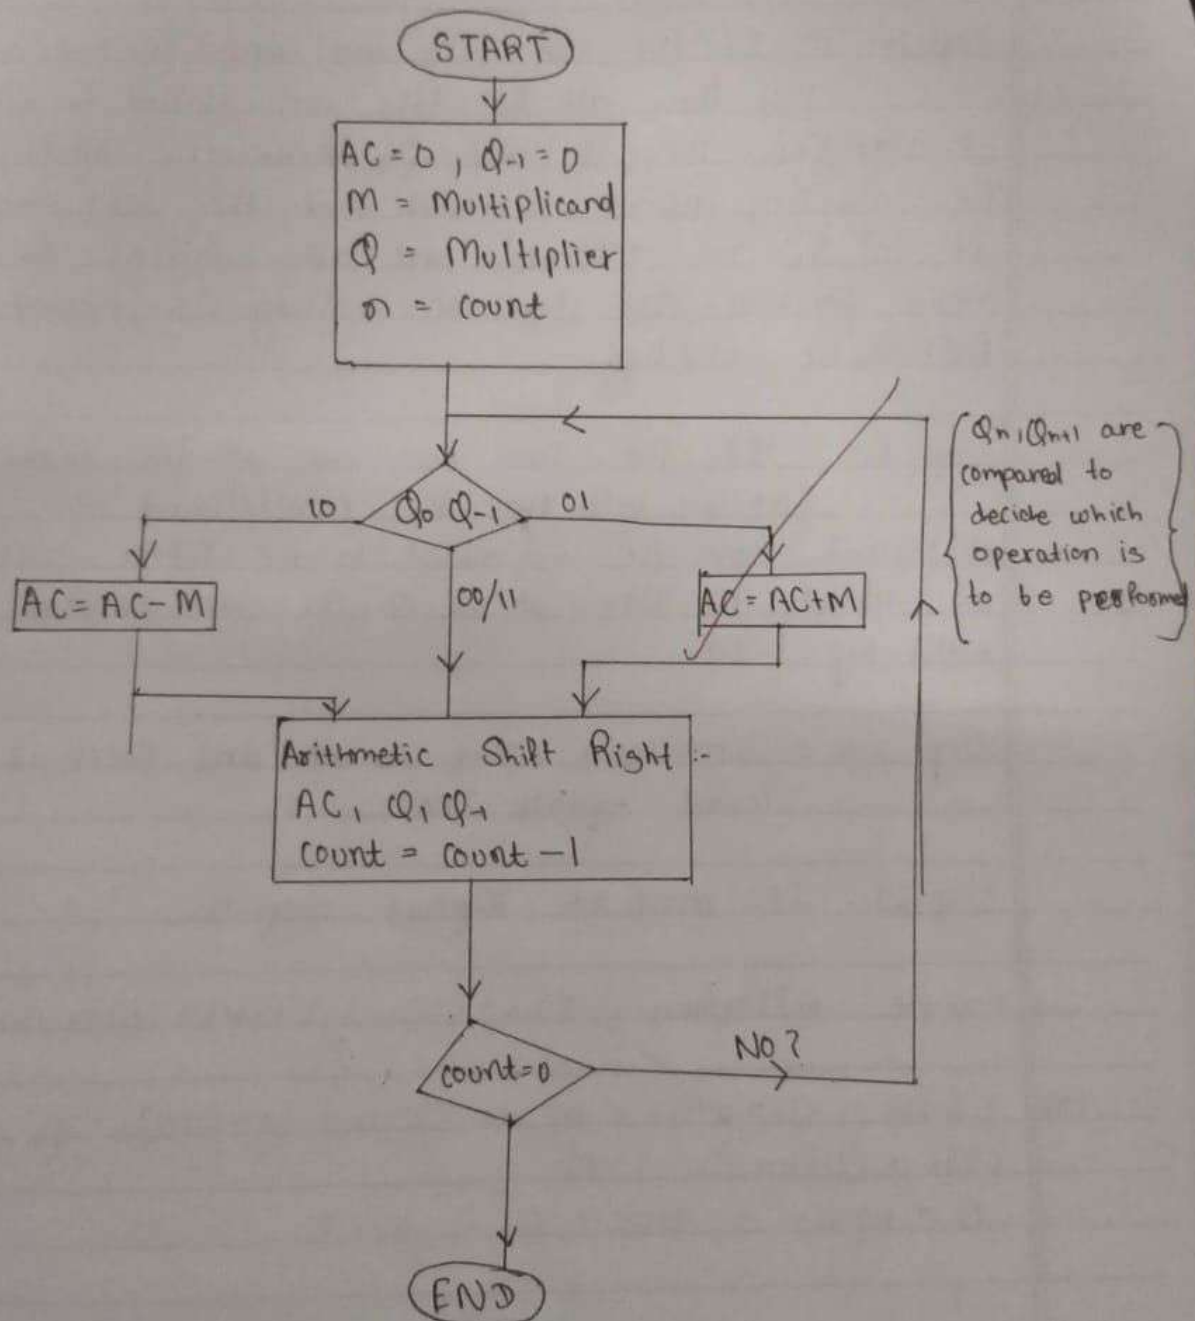 START
AC = 0 , Q-1 = 0
M = Multiplicand
Q = Multiplier
n = count
Q0 Q-1
10
01
00/11
Qn, Qn+1 are
compared to
decide which
operation is
to be performed
AC = AC - M
AC = AC + M
Arithmetic Shift Right :-
AC, Q, Q-1
count = count - 1
count = 0
NO ?
END